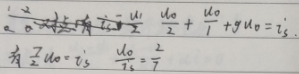 i_s = u_1/2   u_0/2 + u_0/1 + gu_0 = i_s.
有 7/2 u_0 = i_s   u_0/i_s = 2/7